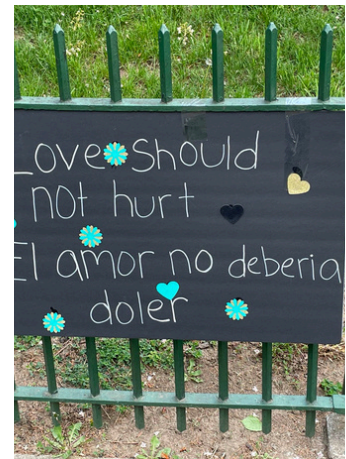 Love should
not hurt
El amor no deberia
doler